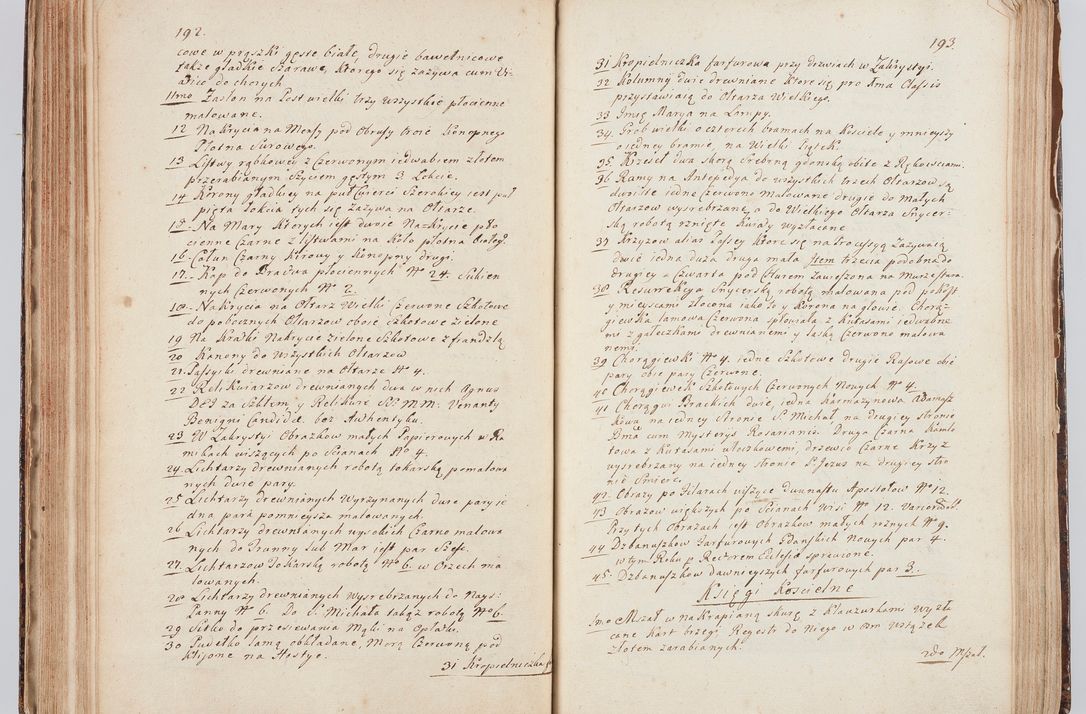 192.
cowe w prążki gęste białe, drugie bawełnicowe
także gładkie Szarawe, ktorego się zażywa cum Vi-
atico do chorych.
11mo Zasłon na Post wielki trzy wszystkie płocienne
malowane.
12 Nakrycia na Mensy pod Obrusy troie Konopnego
Płotna Surowego.
13 Listwy rąbkowey z Czerwonym iedwabiem złotem
przerabianym Szyciem gęstym 3 Łokcie.
14 Korony gładkiey na puł ćwierci Szerokiey iest puł
pięta Łokcia tych się zażywa na Ołtarze.
15 Na Mary ktorych iest dwoie Nakrycie pło
cienne Czarne z listwami na koło płotna białeg.
16 Całun Czarny kirowy y Konopny drugi.
17 Kap do Bractwa płociennych Nº 24. Sukien
nych Czerwonych Nº 2.
18 Nakrycia na Ołtarz Wielki Czerwone Szkotowe
do pobocznych Ołtarzow oboie Szkotowe zielone
19 Na Kratki Nakrycie zielone Szkotowe z frandzlą
20 Kanony do wszystkich Ołtarzow
21. Passyiki drewniane na Ołtarze Nº 4.
22 Relikwiarzow drewnianych dwa w nich Agnus
DEI za Szkłem y Relikwie SS. MM. Venanty
Benigni Candidae bez Authentyku.
23 W Zakrystyi Obrazkow małych Papierowych w Ra
mkach wiszących po Scianach Nº 4.
24. Lichtarzy drewnianych robotą tokarską pomalowa
nych dwie pary.
25 Lichtarzy drewnianych Wyrzynanych dwie pary ie
dna para pomnieysza malowanych.
26 Lichtarzy drewnianych wysokich Czarno malowa
nych do Trunny lub Mar iest par Sześć.
27. Lichtarzow Tokarską robotą Nº 6. w Orzech ma
lowanych.
28 Lichtarzy drewnianych Wysrebrzanych do Nays:
Panny Nº 6. Do S. Michała takąż robotą Nº 6.
29 Sitko do przesiewania Mąki na Opłatki.
30 Pudełko lamą obkładane, Morą Czerwoną pod
kliione na Hostye.
31 Kropielniczka
193.
31 Kropielniczka farfurowa przy drzwiach w Zakrystyi.
32 Kolumny dwie drewniane ktore się pro 1ma Classis
przystawiaią do Ołtarza Wielkiego.
33 Imię Marya na Lampy.
34. Grob wielki o czterech bramach na Kościele y mnieyszy
o iedney bramie, na Wielki Piątek.
35 Krzeseł dwa skorą Srebrną gdańską obite z Rękowsciami.
36 Ramy na Antepedya do wszystkich trzech Ołtarzow są
dwoiste iedne Czerwono malowane drugie do Małych
Ołtarzow wysrebrzane, a do Wielkiego Ołtarza Snycer-
ską robotą rznięte Kwiaty wyzłacane
37 Krzyzow alias Passyi ktore się na Processyą zażywaią
dwie iedna duża druga mała Item trzecia podobna do
drugiey a czwarta pod Chorem zawieszona na Murze stara.
38 Resurrekcya Snycerską robotą malowana pod pokost
y mieyscami złocona iako to y Korona na głowie. Chorą-
giewka lamowa Czerwona spłowiała z Kutasami iedwabne
mi z gałeczkami drewnianemi y laską Czerwono malowa
nemi.
39 Chorągiewki Nº 4. iedne Szkotowe drugie Rasowe obie
pary obie pary Czerwone.
40 Chorągiewek Szkotowych Czerwonych Nowych Nº 4.
41 Chorągwi Brackich dwie, iedna Karmazynowa Adamasz
kowa na iedney Stronie S. Michał na drugiey stronie
Bma cum Mysterys Rosarianis. Druga Czarna Kamlo
towa z Kutasami włoczkowemi, drzewce Czarne Krzyz
wysrebrzany na iedney stronie P. Jezus na drugiey stro
nie Smierć.
42. Obrazy po Filarach wiszące dwunastu Apostołow Nº 12.
43 Obrazow większych po Scianach wisi Nº 12.
Przy tych Obrazach iest Obrazkow małych rożnych Nº 9.
44 Dzbanuszkow farfurowych Gdańskich Nowych par 4.
w tym Roku p. Rectorem Ecclesiae sprawione.
45. Dzbanuszkow dawnieyszych farfurowych par 3.
Księgi Kościelne
1mo Mszał w nakrapianą skurę z klauzurkami wyzła
cane kart brzegi, Regestr do Niego w 8m wstążek
złotem zarabianych.
2do Mszał.